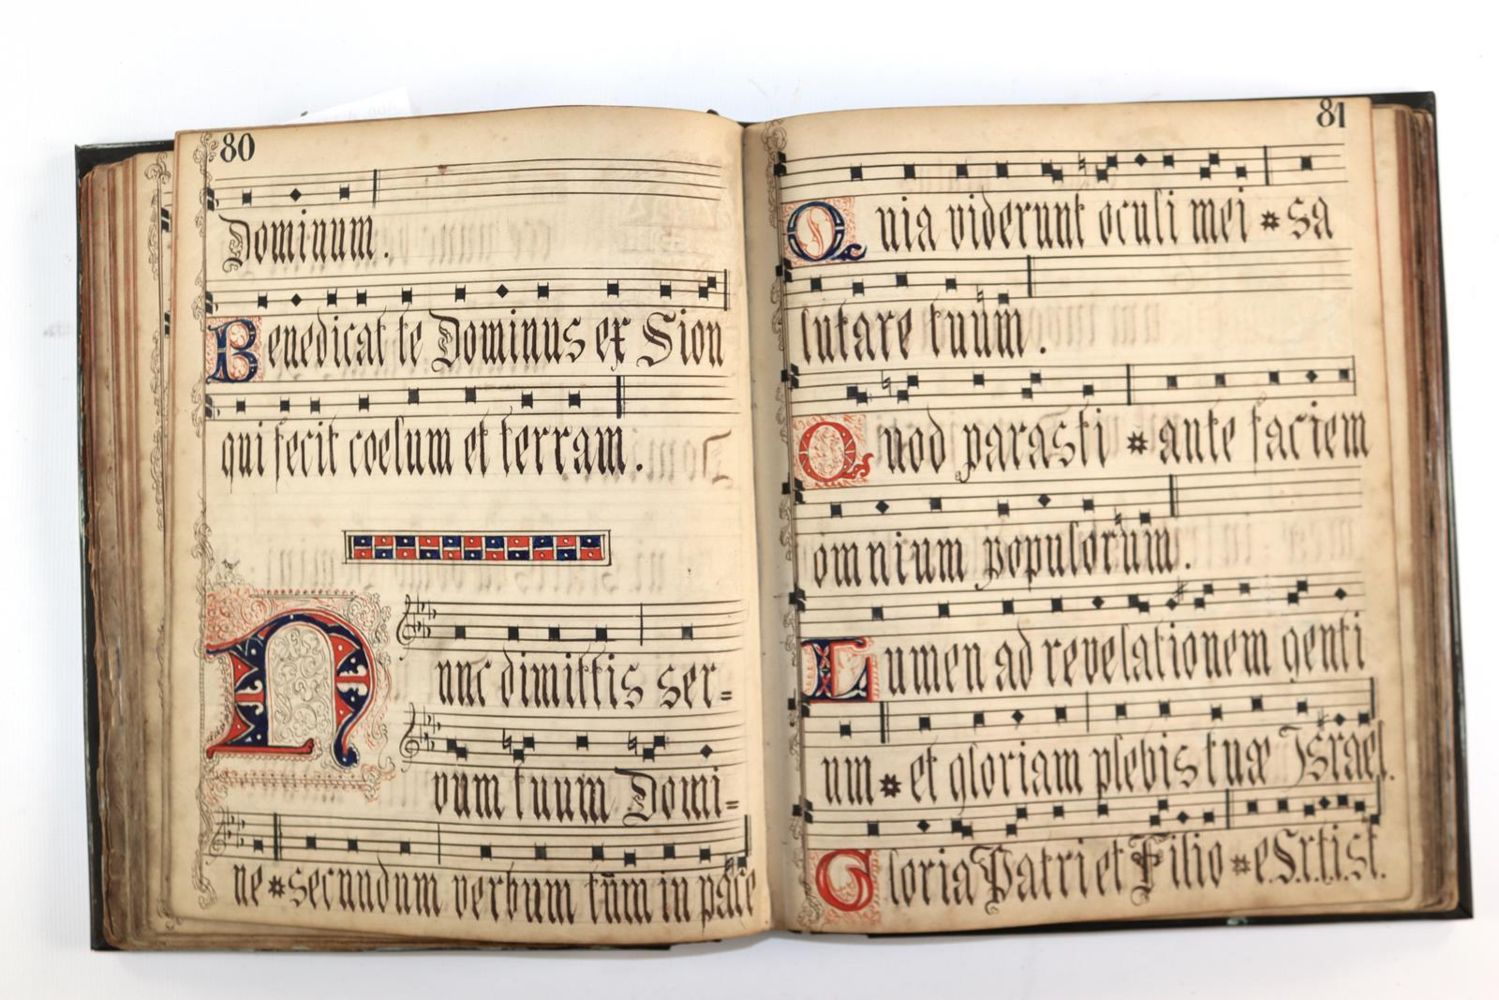 80
Dominum.
Benedicat te Dominus ex Sion
qui fecit coelum et terram.
Nunc dimittis ser=
vum tuum Domi=
ne * secundum verbum tūm in pace
81
Quia viderunt oculi mei * sa
lutare tuum.
Quod parasti * ante faciem
omnium populorum.
Lumen ad revelationem genti
um * et gloriam plebis tuæ Israel.
Gloria Patri et Filio * e.S.r.t.i.s.t.